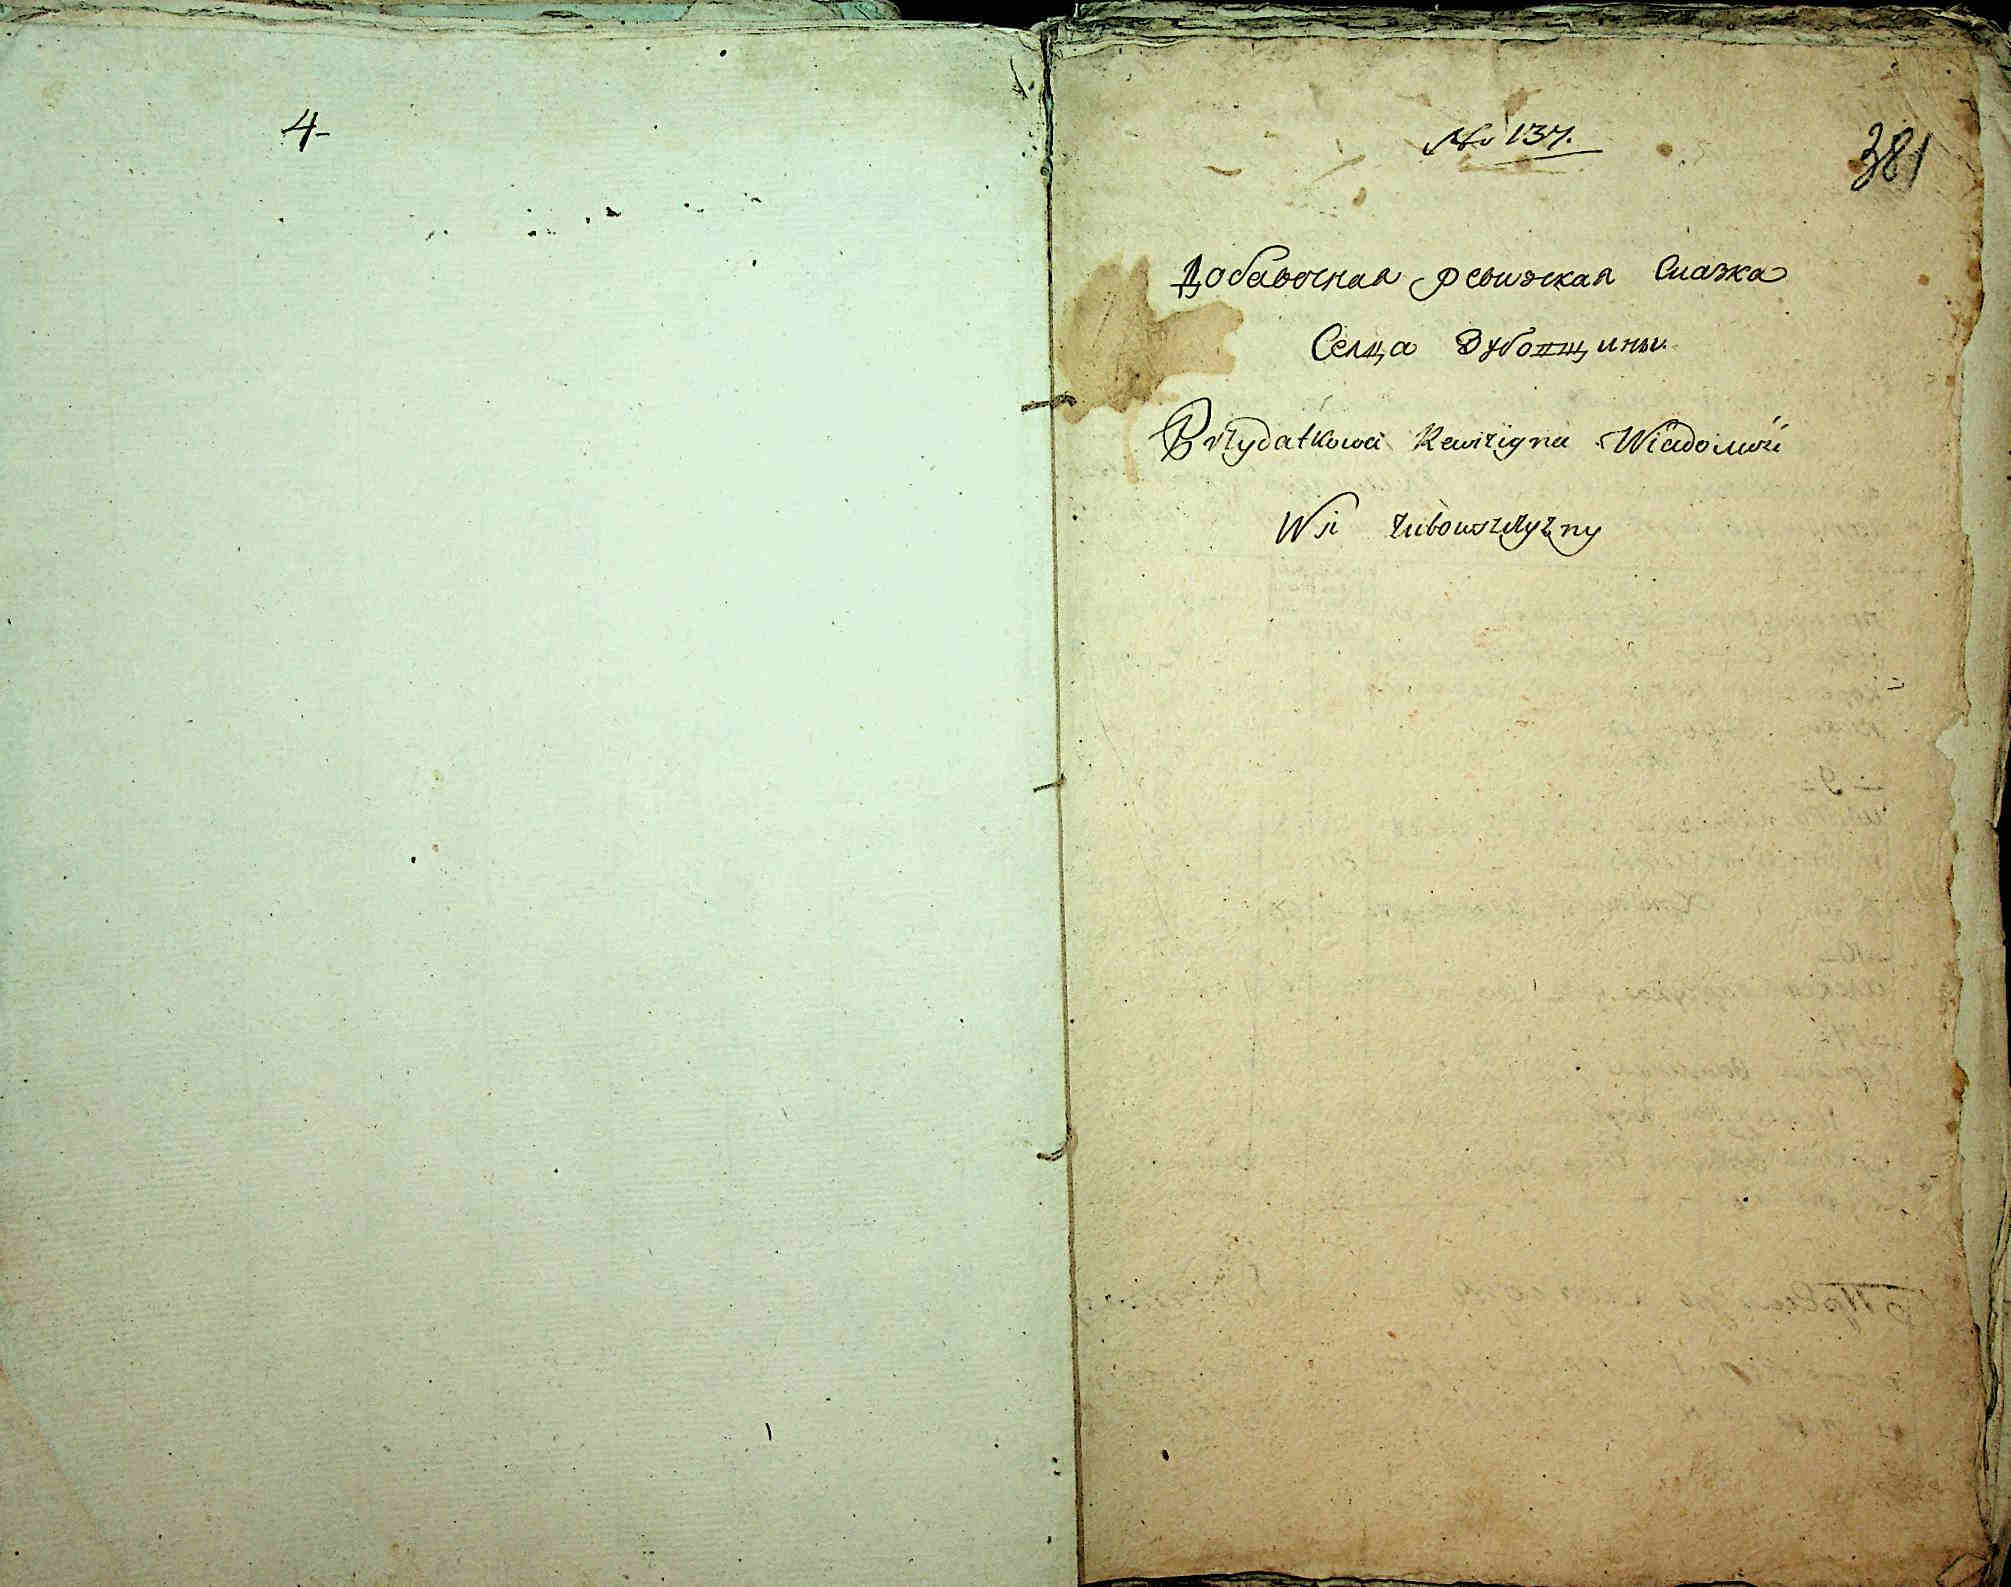 4
№ 137.
381
Добавочная ревизская Сказка
Селца Зубовщины
Przydatkowa Rewizyyna Wiadomość
Wsi Zubowszczyzny